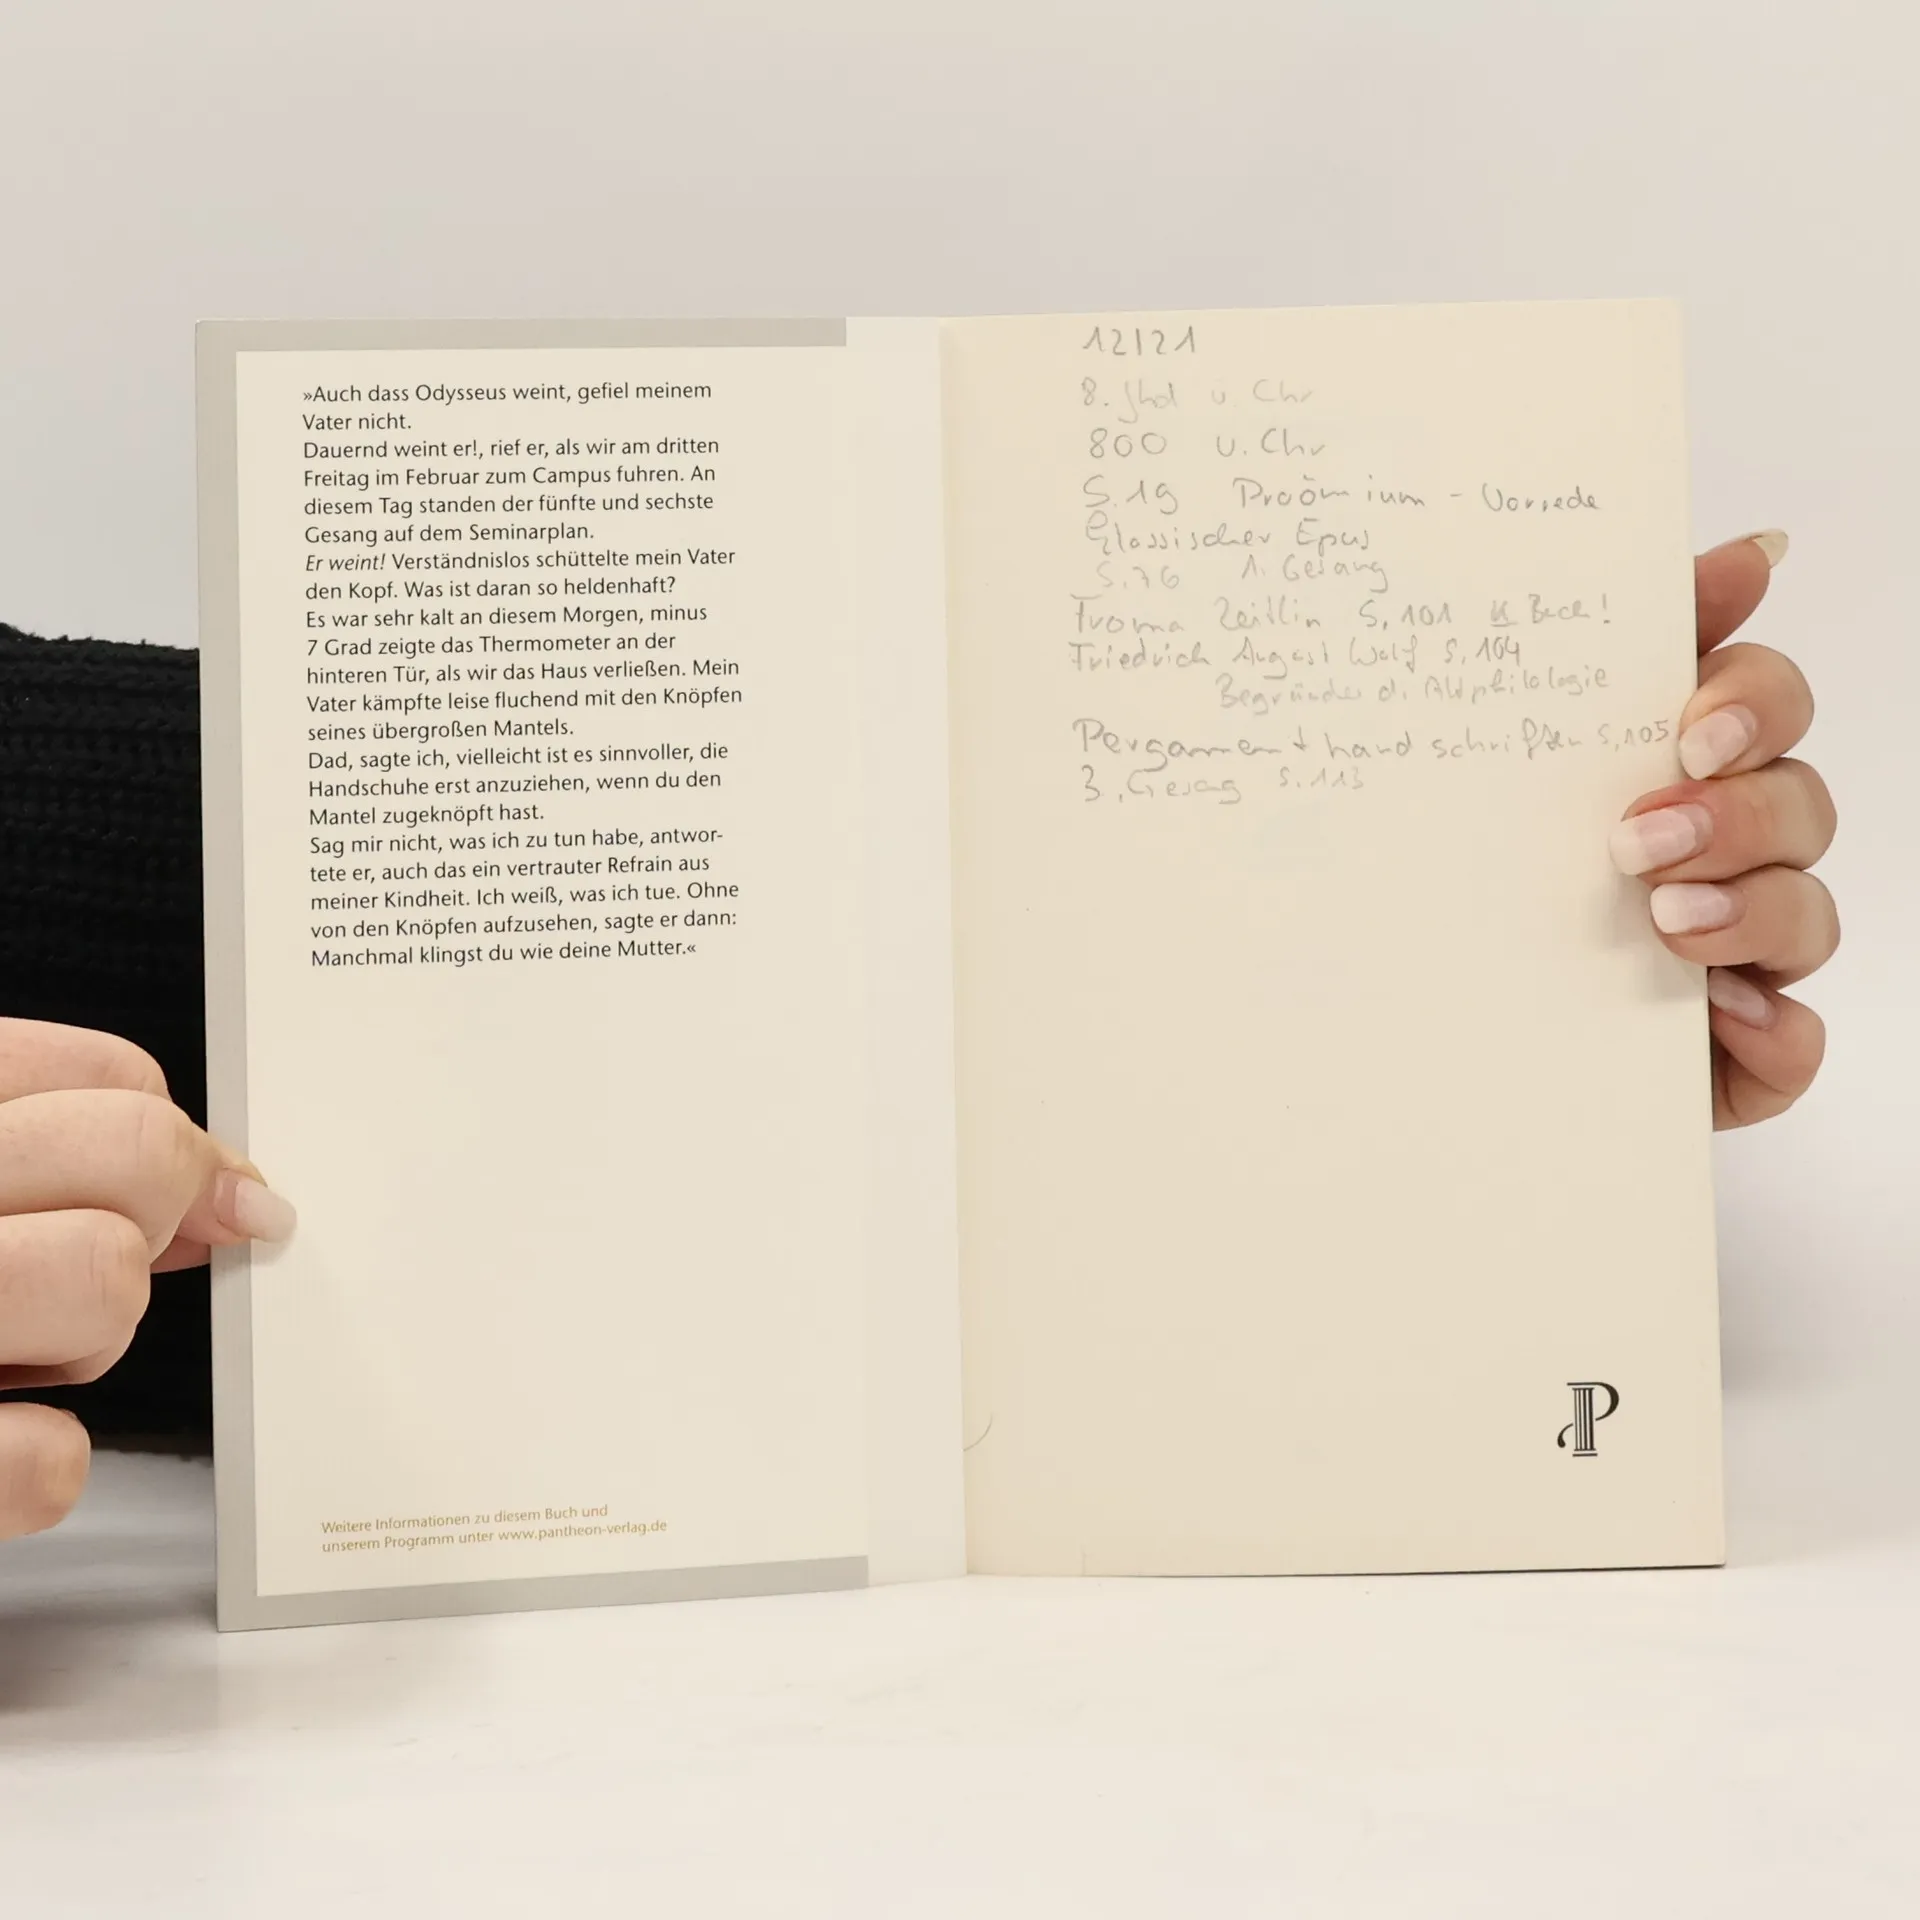 »Auch dass Odysseus weint, gefiel meinem
Vater nicht.
Dauernd weint er!, rief er, als wir am dritten
Freitag im Februar zum Campus fuhren. An
diesem Tag standen der fünfte und sechste
Gesang auf dem Seminarplan.
Er weint! Verständnislos schüttelte mein Vater
den Kopf. Was ist daran so heldenhaft?
Es war sehr kalt an diesem Morgen, minus
7 Grad zeigte das Thermometer an der
hinteren Tür, als wir das Haus verließen. Mein
Vater kämpfte leise fluchend mit den Knöpfen
seines übergroßen Mantels.
Dad, sagte ich, vielleicht ist es sinnvoller, die
Handschuhe erst anzuziehen, wenn du den
Mantel zugeknöpft hast.
Sag mir nicht, was ich zu tun habe, antwor-
tete er, auch das ein vertrauter Refrain aus
meiner Kindheit. Ich weiß, was ich tue. Ohne
von den Knöpfen aufzusehen, sagte er dann:
Manchmal klingst du wie deine Mutter.«
Weitere Informationen zu diesem Buch und
unserem Programm unter www.pantheon-verlag.de
12/21
8. Jhd v. Chr
800 v. Chr
S. 19 Proömium - Vorrede
Klassischer Epus
S. 76 1. Gesang
Froma Zeitlin S. 101
Friedrich August Wolf S. 104
Begründer d. Altphilologie
Pergament handschriften S. 105
3. Gesang S. 113
P